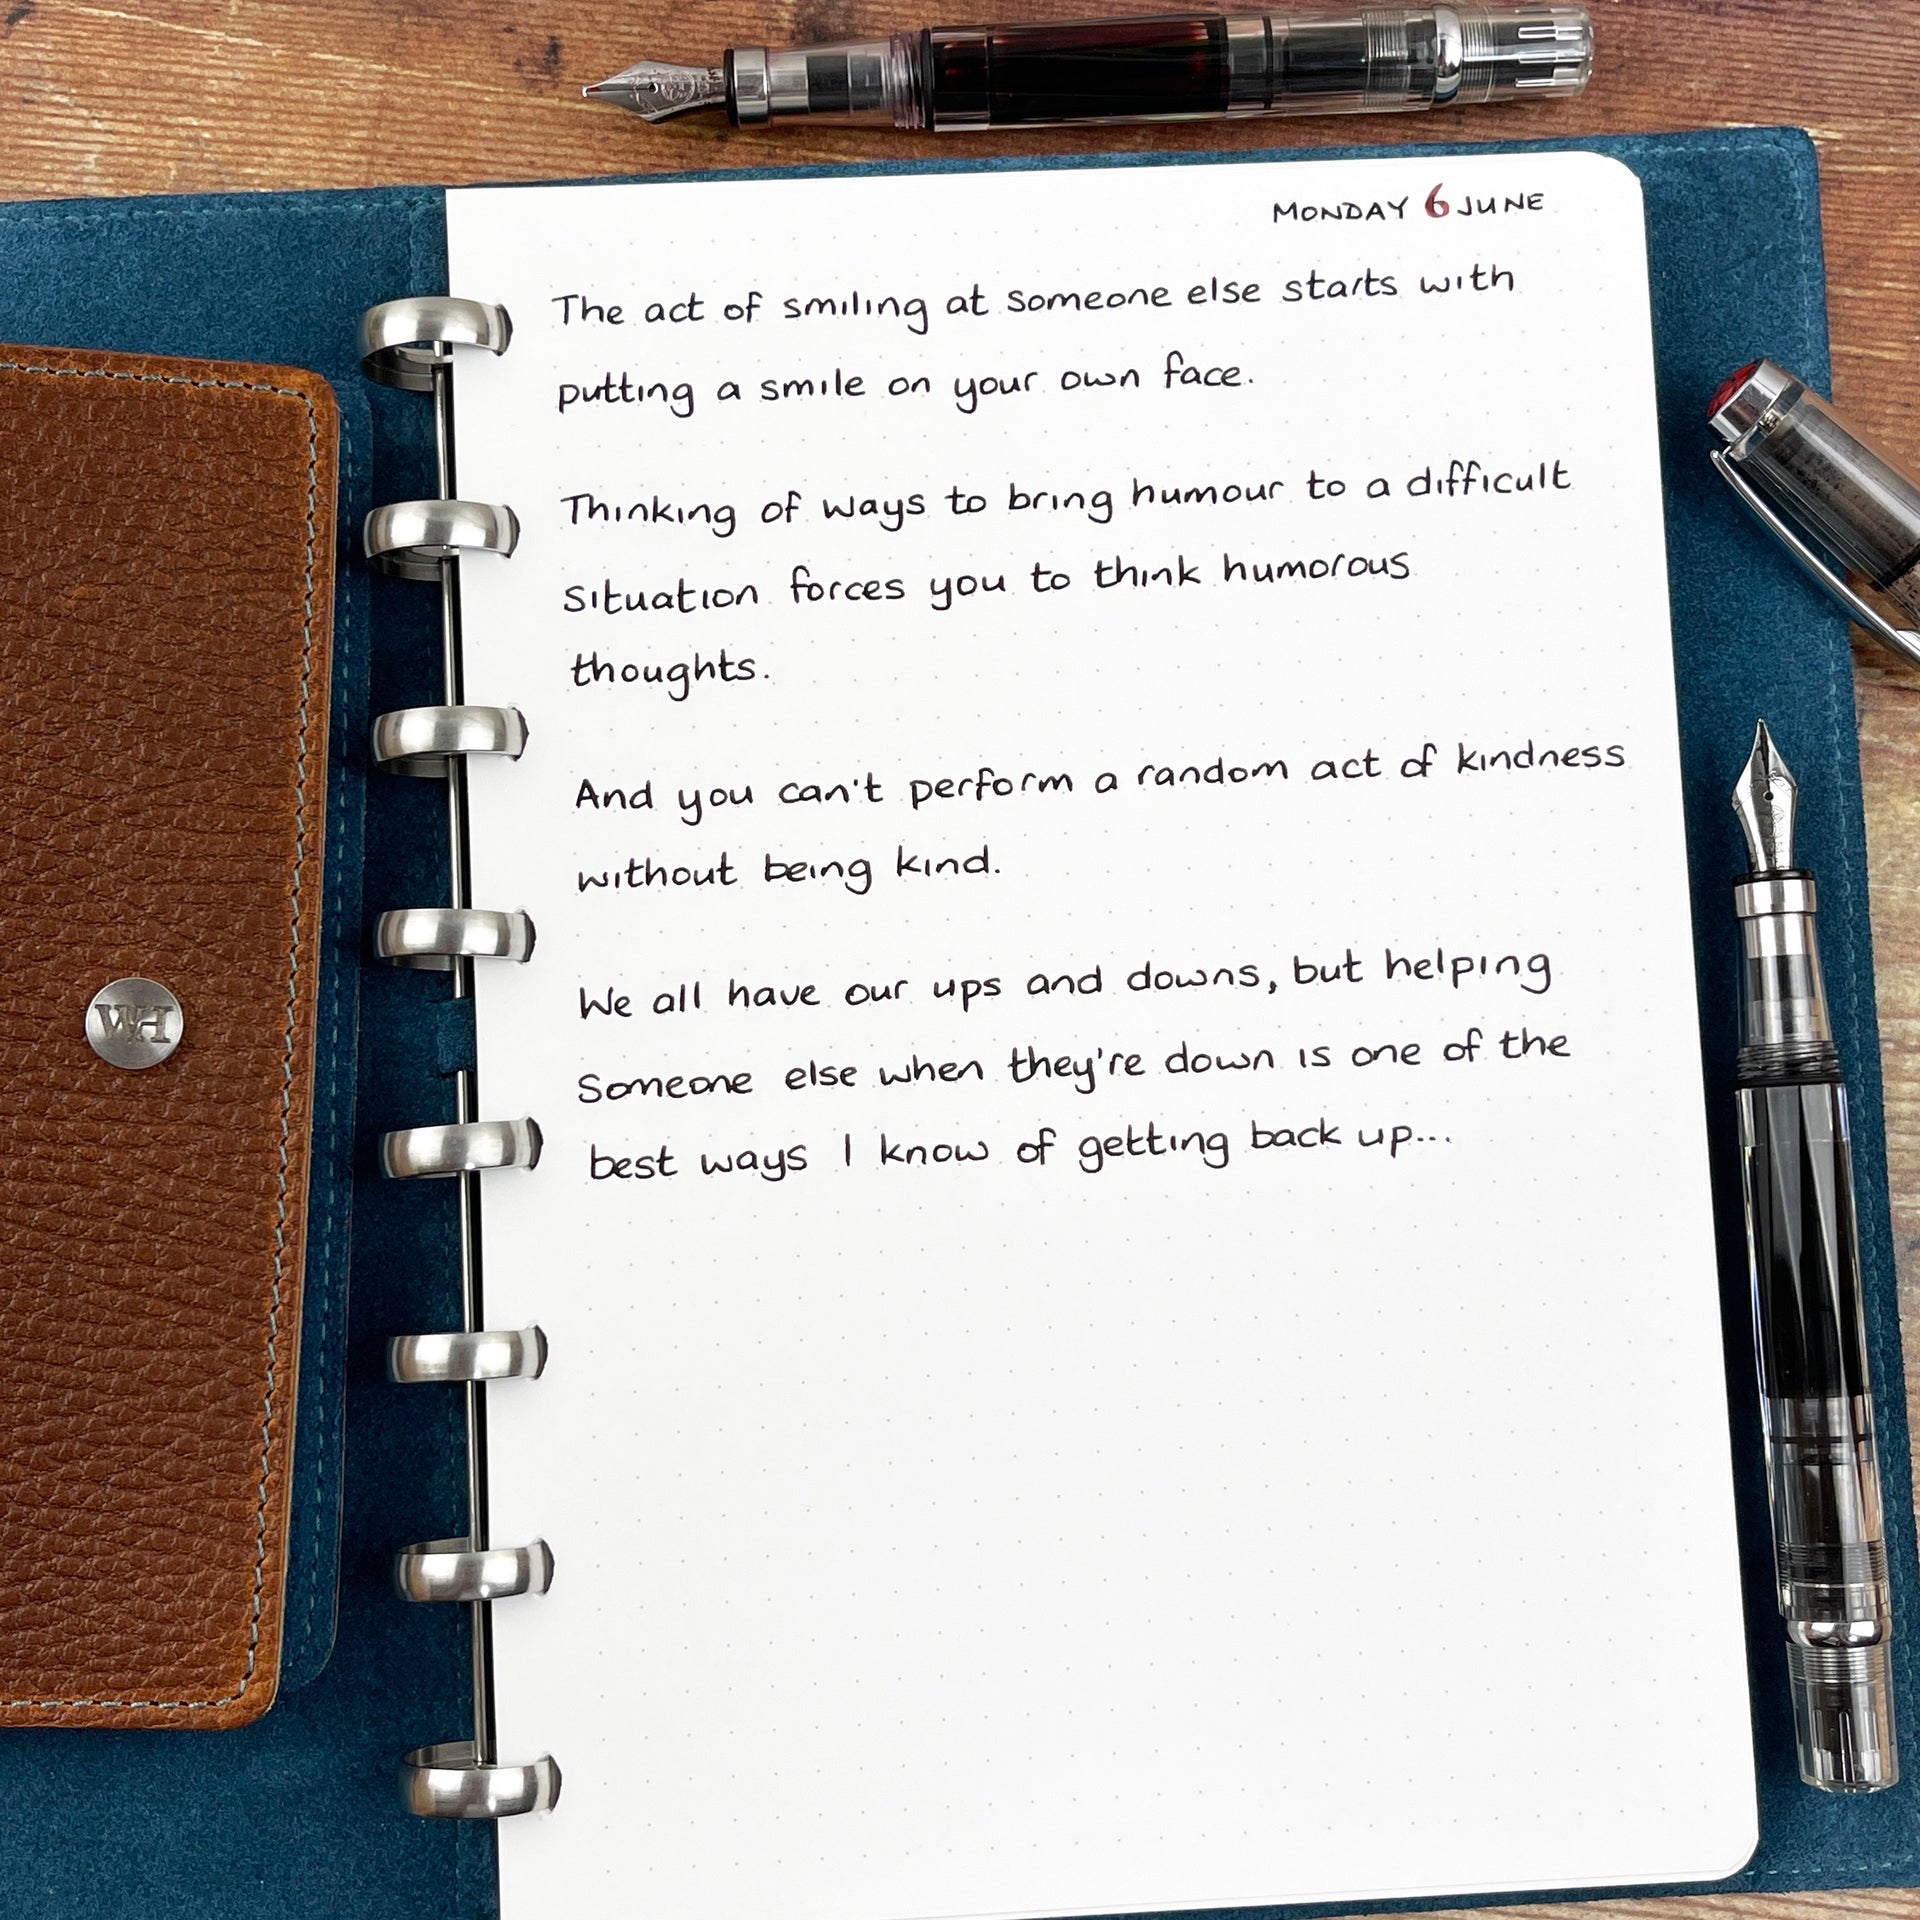 MONDAY 6 JUNE
The act of smiling at someone else starts with
putting a smile on your own face.
Thinking of ways to bring humour to a difficult
situation forces you to think humorous
thoughts.
And you can't perform a random act of kindness
without being kind.
We all have our ups and downs, but helping
someone else when they're down is one of the
best ways I know of getting back up...
WH